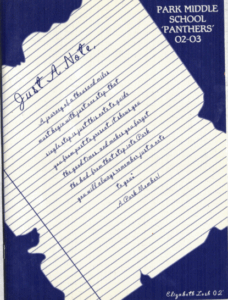 PARK MIDDLE
SCHOOL
'PANTHERS'
02-03
Just A Note...
A journey of a thousand miles
must begin with just one step, that
single step is just this note to guide
you from past to present. It shows you
the good times and makes you forget
the bad. From that step into Park
you will always remember just a note
to you!
A Park Member!
Elizabeth 02'